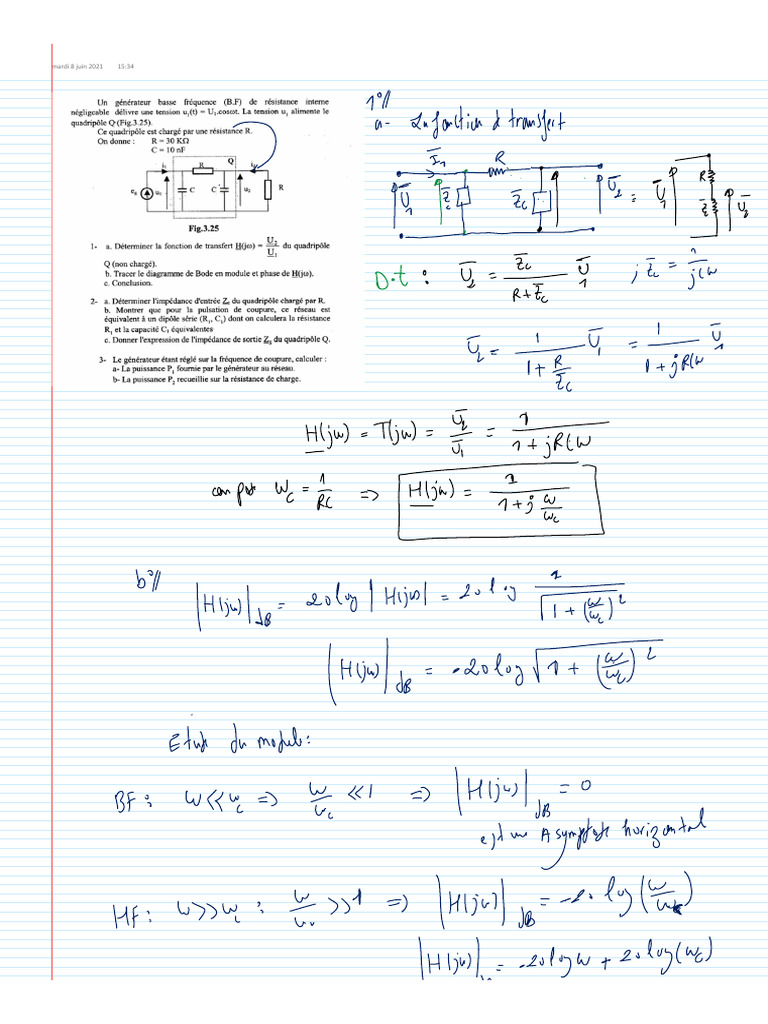 mardi 8 juin 2021 15:34
Un générateur basse fréquence (B.F) de résistance interne
négligeable délivre une tension u₁(t) = U₁.cosωt. La tension u₁ alimente le
quadripôle Q (Fig.3.25).
Ce quadripôle est chargé par une résistance R.
On donne : R = 30 KΩ
C = 10 nF
Q
R
C C
u₂
R
Fig.3.25
1- a. Déterminer la fonction de transfert H(jω) = U₂/U₁ du quadripôle
Q (non chargé).
b. Tracer le diagramme de Bode en module et phase de H(jω).
c. Conclusion.
2- a. Déterminer l'impédance d'entrée Zₑ du quadripôle chargé par R.
b. Montrer que pour la pulsation de coupure, ce réseau est
équivalent à un dipôle série (R₁, C₁) dont on calculera la résistance
R₁ et la capacité C₁ équivalentes
c. Donner l'expression de l'impédance de sortie Zₛ du quadripôle Q.
3- Le générateur étant réglé sur la fréquence de coupure, calculer :
a- La puissance P₁ fournie par le générateur au réseau.
b- La puissance P₂ recueillie sur la résistance de charge.
1°//
a- La fonction d transfert
I̅₁ R
U̅₁ Z̅c Z̅c U̅₂ = U̅₁ R Z̅c U̅₂
D.t : U̅₂ = Z̅c/(R+Z̅c) U̅₁ ; Z̅c = 1/jCω
U̅₂ = 1/(1+R/Z̅c) U̅₁ = 1/(1+jRCω) U̅₁
H(jω) = T(jω) = U̅₂/U̅₁ = 1/(1+jRCω)
ωc = 1/RC => H(jω) = 1/(1+j ω/ωc)
b°// |H(jω)|dB = 20log |H(jω)| = 20log 1/√(1+(ω/ωc)²)
|H(jω)|dB = -20log √(1+(ω/ωc)²)
Etude du module:
BF: ω<<ωc => ω/ωc <<1 => |H(jω)|dB = 0
est une Asymptote horizontal
HF: ω>>ωc : ω/ωc >>1 => |H(jω)|dB = -20 log(ω/ωc)
|H(jω)| = -20logω + 20log(ωc)